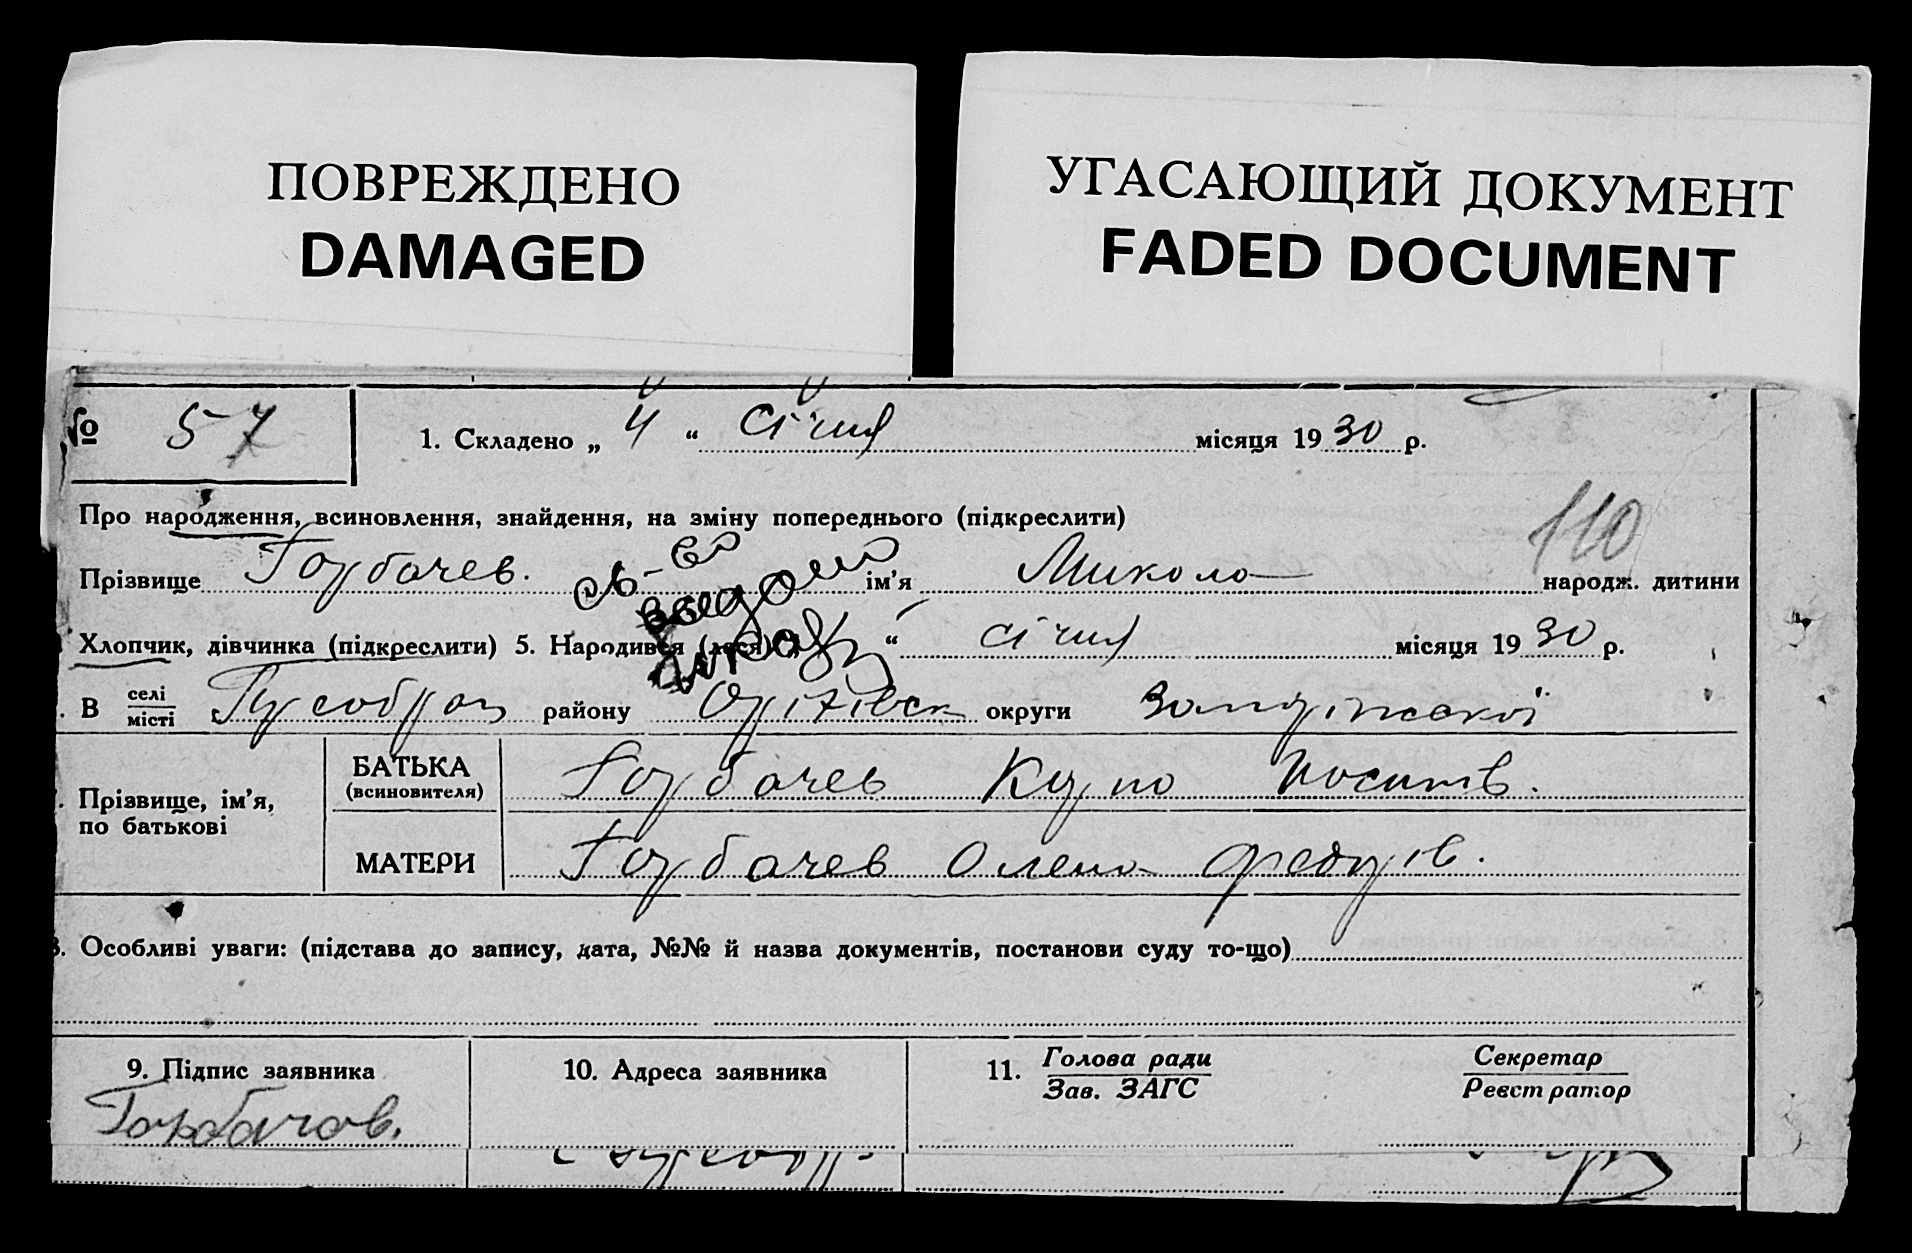 ПОВРЕЖДЕНО
DAMAGED
УГАСАЮЩИЙ ДОКУМЕНТ
FADED DOCUMENT
№ 57
1. Складено „ 4 “ січня місяця 19 30 р.
110
Про народження, всиновлення, знайдення, на зміну попереднього (підкреслити)
Прізвище Горбачев. ім’я Микола народж. дитини
Хлопчик, дівчинка (підкреслити) 5. Народився “ січня місяця 19 30 р.
В селі місті району Оріхівськ округи Запорізської
Прізвище, ім’я, по батькові
БАТЬКА (всиновителя) Горбачев Карпо Йосипів.
МАТЕРИ Горбачев Олена Федорів.
8. Особливі уваги: (підстава до запису, дата, №№ й назва документів, постанови суду то-що)
9. Підпис заявника
10. Адреса заявника
11. Голова ради Зав. ЗАГС
Секретар Реєстратор
Горбачов.